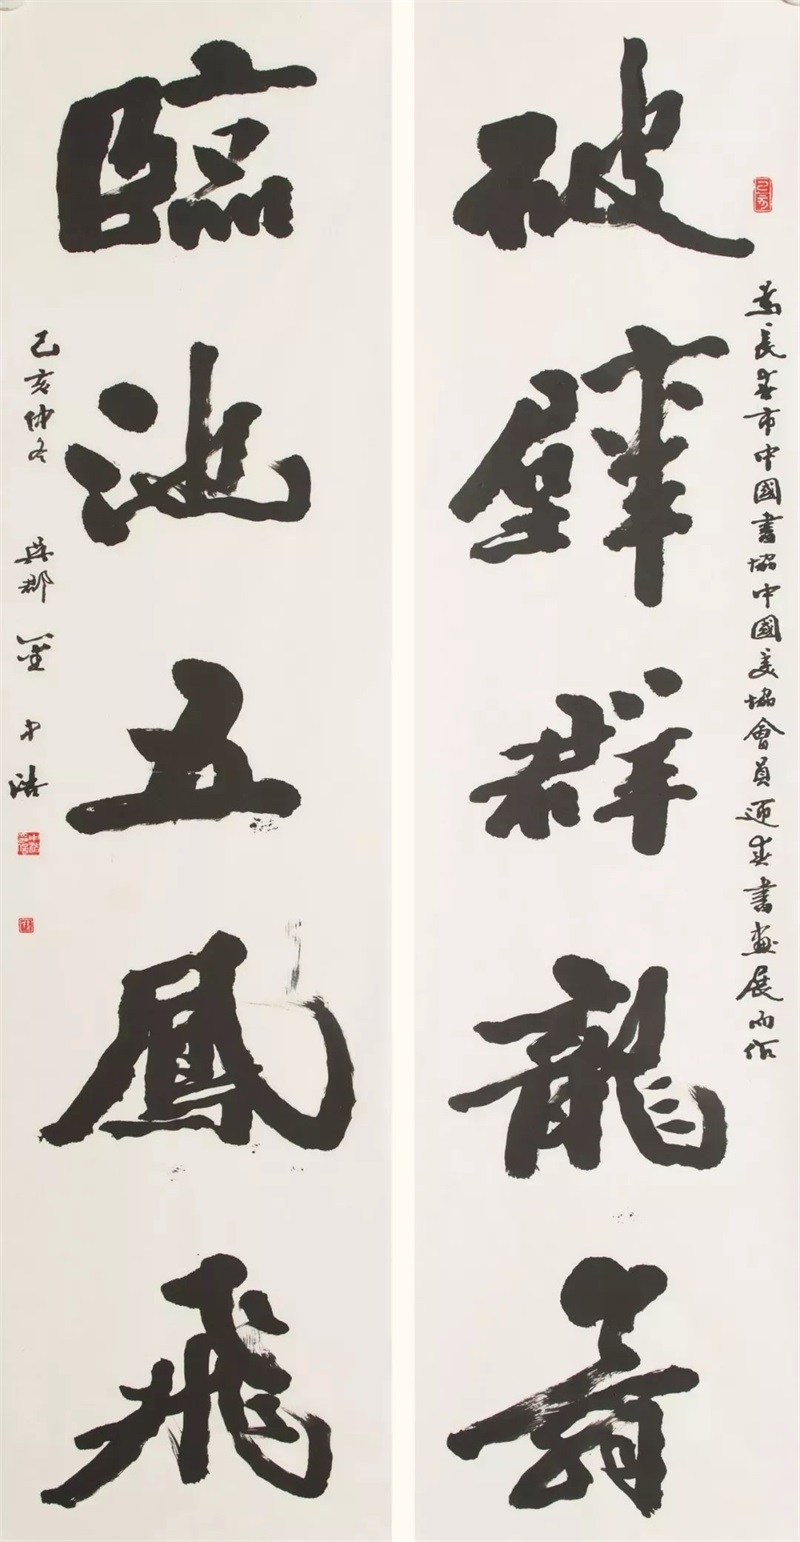 破壁群龍翥
為長春市中國書協中國美協會員迎春書畫展而作
臨池五鳳飛
己亥仲冬 吳郡 金中浩